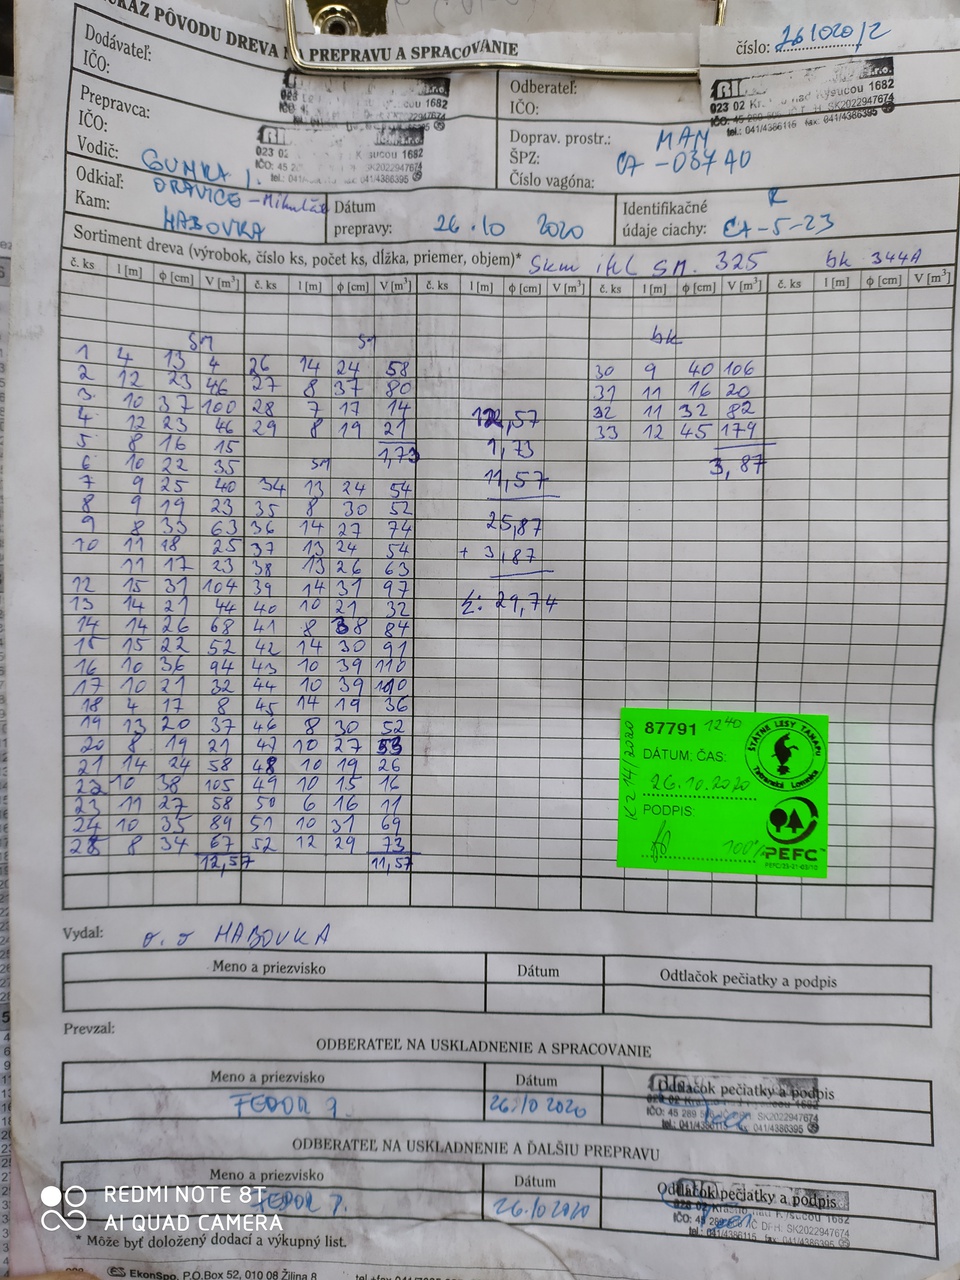 UKAZ PÔVODU DREVA NA PREPRAVU A SPRACOVANIE
číslo: 261020/2
Dodávateľ:
IČO:
023 02 Kysucou 1682
Odberateľ:
IČO:
023 02 Kr nad Kysucou 1682
IČO: 45 289 SK2022947674
tel.: 041/4386115 fax: 041/4386395
Prepravca:
IČO:
Vodič: GUNKA J.
023 02 Kysucou 1682
IČO: 45 SK2022947674
tel.: 041/4386395
Doprav. prostr.: MAN
ŠPZ: CA-037AO
Číslo vagóna:
Odkiaľ: ORAVICE - Mikuláš
Kam: HABOVKA
Dátum
prepravy: 26.10 2020
Identifikačné R
údaje ciachy: CA-5-23
Sortiment dreva (výrobok, číslo ks, počet ks, dĺžka, priemer, objem)* Skm ihl SM. 325 bk 344A
č. ks l [m] ϕ [cm] V [m³] č. ks l [m] ϕ [cm] V [m³] č. ks l [m] ϕ [cm] V [m³] č. ks l [m] ϕ [cm] V [m³] č. ks l [m] ϕ [cm] V [m³]
SM SM bk
1 4 13 4 26 14 24 58 30 9 40 106
2 12 23 46 27 8 37 80 31 11 16 20
3 10 37 100 28 7 17 14 12,57 32 11 32 82
4 12 23 46 29 8 19 21 1,73 33 12 45 179
5 8 16 15 1,73 11,57 3,87
6 10 22 35 SM
7 9 25 40 34 13 24 54
8 9 19 23 35 8 30 52 25,87
9 8 33 63 36 14 27 74
10 11 18 25 37 13 24 54 + 3,87
11 17 23 38 13 26 63
12 15 31 104 39 14 31 97
13 14 21 44 40 10 21 32 Σ: 29,74
14 14 26 68 41 8 38 84
15 15 22 52 42 14 30 91
16 10 36 94 43 10 39 110
17 10 21 32 44 10 39 110
18 4 17 8 45 14 19 36
19 13 20 37 46 8 30 52
20 8 19 21 47 10 27 53
21 14 24 58 48 10 19 26
22 10 38 105 49 10 15 16
23 11 27 58 50 6 16 11
24 10 35 89 51 10 31 69
25 8 34 67 52 12 29 73
12,57 11,57
87791 12 40
DÁTUM: ČAS:
26.10.2020
PODPIS:
100%
KZ 14/2020
ŠTÁTNE LESY TANAPU
Tatranská Lomnica
PEFC
Vydal: o. o HABOVKA
Meno a priezvisko Dátum Odtlačok pečiatky a podpis
Prevzal:
ODBERATEĽ NA USKLADNENIE A SPRACOVANIE
Meno a priezvisko Dátum Odtlačok pečiatky a podpis
FEDOR J. 26.10 2020
IČO: 45 289 SK2022947674
041/4386395
ODBERATEĽ NA USKLADNENIE A ĎALŠIU PREPRAVU
Meno a priezvisko Dátum Odtlačok pečiatky a podpis
FEDOR J. 26.10 2020
* Môže byť doložený dodací a výkupný list.
EkonSpo, P.O.Box 52, 010 08 Žilina 8
REDMI NOTE 8T
AI QUAD CAMERA